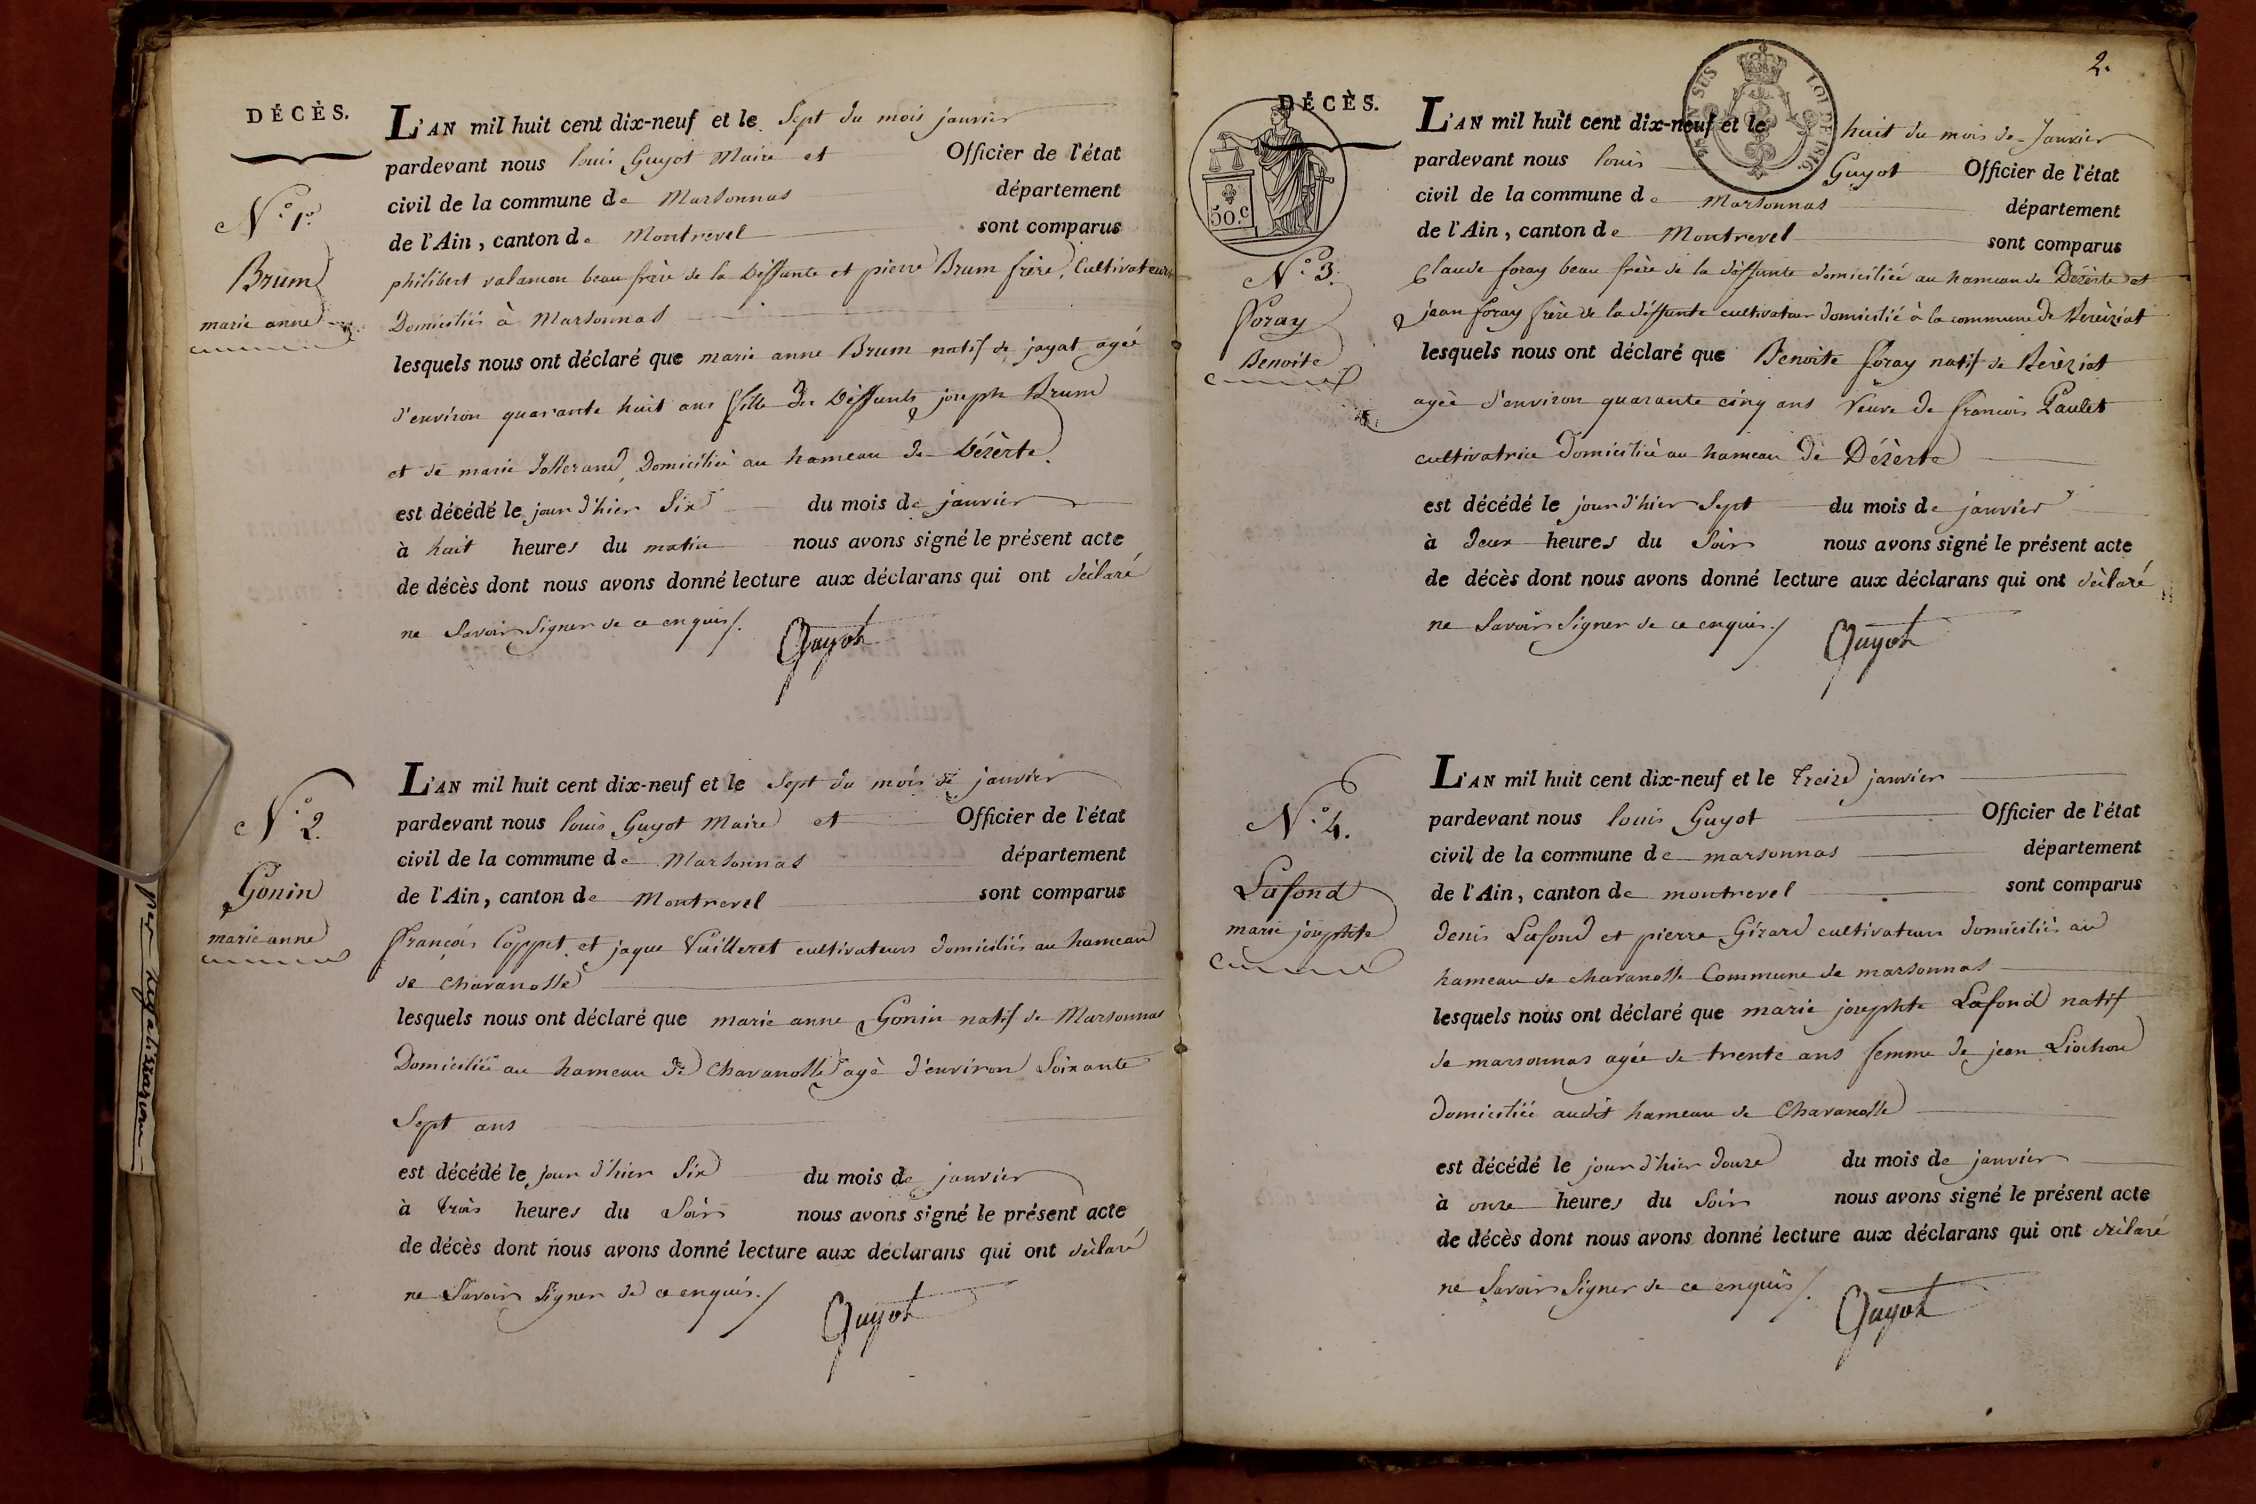 DÉCÈS.
N.° 1.er
Brum
marie anne
L'AN mil huit cent dix-neuf et le Sept du mois janvier
pardevant nous louis Guyot Maire et Officier de l'état
civil de la commune de Marsonnas département
de l'Ain, canton de Montrevel sont comparus
philibert valamon beau frère de la déffunte et pierre Brum frère, Cultivateurs
Domiciliés à Marsonnas
lesquels nous ont déclaré que marie anne Brum natif de jayat agée
d'environ quarante huit ans fille des déffunts joseph Brum
et de marie Domicilié au hameau de Dézèrte.
est décédé le jour d'hier Six du mois de janvier
à huit heures du matin nous avons signé le présent acte
de décès dont nous avons donné lecture aux déclarans qui ont déclaré
ne Savoir Signer de ce enquis /.
Guyot
N.° 2.
Gonin
marie anne
L'AN mil huit cent dix-neuf et le Sept du mois de janvier
pardevant nous louis Guyot Maire et Officier de l'état
civil de la commune de Marsonnas département
de l'Ain, canton de Montrevel sont comparus
françois Coppet et jaque Vuilleret cultivateurs domiciliés au hameau
de Chavanosse
lesquels nous ont déclaré que marie anne Gonin natif de Marsonnas
Domiciliée au hameau de Chavanosse agé d'environ Soixante
Sept ans
est décédé le jour d'hier Six du mois de janvier
à trois heures du Soir nous avons signé le présent acte
de décès dont nous avons donné lecture aux déclarans qui ont déclaré
ne Savoir Signer de ce enquis. /
Guyot
2.
DÉCÈS.
50.c
EN SUS
LOI DE 1816.
N.° 3.
foray
Benoite
L'AN mil huit cent dix-neuf et le huit du mois de Janvier
pardevant nous louis Guyot Officier de l'état
civil de la commune de Marsonnas département
de l'Ain, canton de Montrevel sont comparus
Claude foray beau frère de la déffunte domiciliée au hameau de Dézèrte et
jean foray frère de la déffunte cultivateur domicilié à la commune de Béréiziat
lesquels nous ont déclaré que Benoite foray natif de Béréziat
agée d'environ quarante cinq ans Veuve de françois Paulet
cultivatrice domiciliée au hameau de Dézèrte
est décédé le jour d'hier Sept du mois de janvier
à deux heures du Soir nous avons signé le présent acte
de décès dont nous avons donné lecture aux déclarans qui ont déclaré
ne Savoir Signer de ce enquis. /
Guyot
N.° 4.
Lafond
marie josephte
L'AN mil huit cent dix-neuf et le Treize janvier
pardevant nous louis Guyot Officier de l'état
civil de la commune de marsonnas département
de l'Ain, canton de montrevel sont comparus
denis Lafond et pierre Girard cultivateurs domiciliés au
hameau de chavanosse Commune de marsonnas
lesquels nous ont déclaré que marie josephte Lafond natif
de marsonnas agée de trente ans femme de jean Liochon
domiciliée audit hameau de Chavanosse
est décédé le jour d'hier douze du mois de janvier
à onze heures du Soir nous avons signé le présent acte
de décès dont nous avons donné lecture aux déclarans qui ont déclaré
ne Savoir Signer de ce enquis /.
Guyot